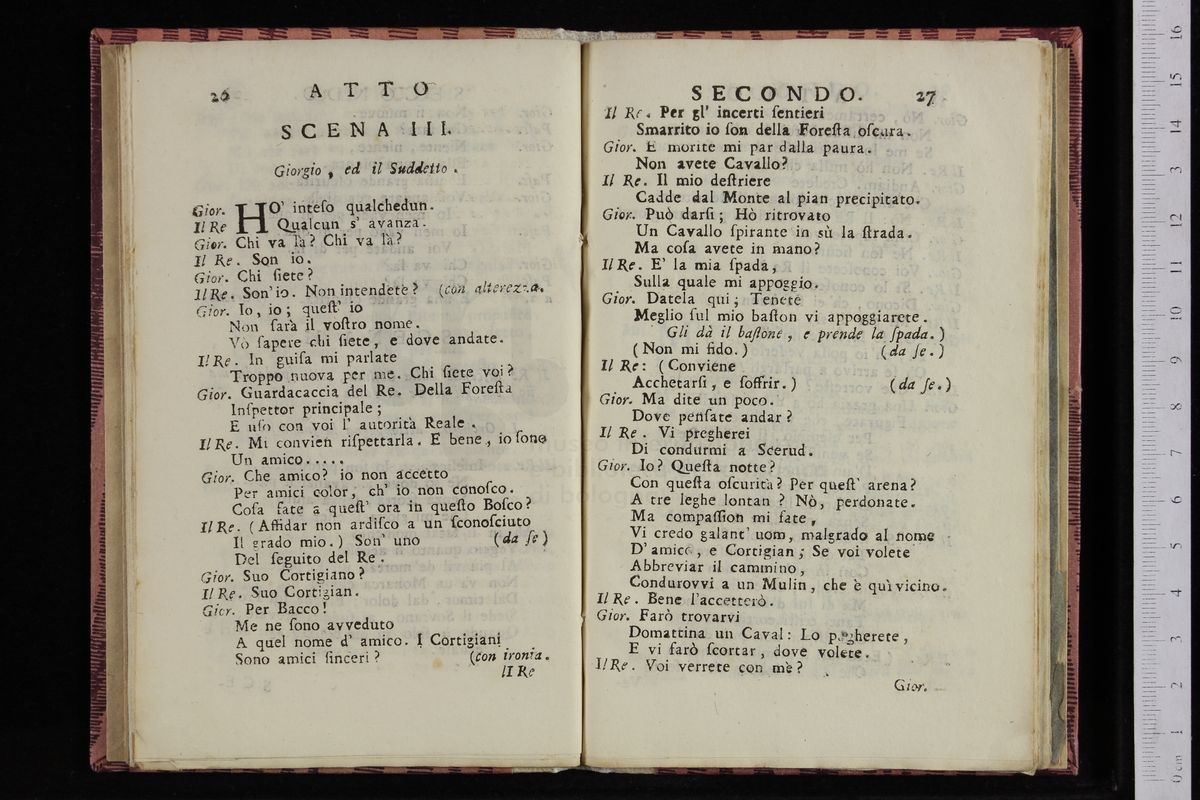 26 ATTO
SCENA III.
Giorgio, ed il Suddetto.
Gior. HO' inteſo qualchedun.
Il Re Qualcun s' avanza.
Gior. Chi va là? Chi va là?
Il Re. Son io.
Gior. Chi ſiete?
Il Re. Son' io. Non intendete? (con alterezza.
Gior. Io, io; queſt' io
Non ſarà il voſtro nome.
Vò ſapere chi ſiete, e dove andate.
Il Re. In guiſa mi parlate
Troppo nuova per me. Chi ſiete voi?
Gior. Guardacaccia del Re. Della Foreſta
Inſpettor principale;
E uſo con voi l' autorità Reale.
Il Re. Mi convien riſpettarla. E bene, io ſono
Un amico.....
Gior. Che amico? io non accetto
Per amici color, ch' io non conoſco.
Coſa fate a queſt' ora in queſto Boſco?
Il Re. (Affidar non ardiſco a un ſconoſciuto
Il grado mio.) Son' uno (da ſe)
Del ſeguito del Re.
Gior. Suo Cortigiano?
Il Re. Suo Cortigian.
Gior. Per Bacco!
Me ne ſono avveduto
A quel nome d' amico. I Cortigiani
Sono amici ſinceri? (con ironia.
Il Re
SECONDO. 27
Il Re. Per gl' incerti ſentieri
Smarrito io ſon della Foreſta oſcura.
Gior. E morite mi par dalla paura.
Non avete Cavallo?
Il Re. Il mio deſtriere
Cadde dal Monte al pian precipitato.
Gior. Può darſi; Hò ritrovato
Un Cavallo ſpirante in sù la ſtrada.
Ma coſa avete in mano?
Il Re. E' la mia ſpada,
Sulla quale mi appoggio.
Gior. Datela qui; Tenete
Meglio ſul mio baſton vi appoggiarete.
Gli dà il baſtone, e prende la ſpada.)
(Non mi fido.) (da ſe.)
Il Re: (Conviene
Acchetarſi, e ſoffrir.) (da ſe.)
Gior. Ma dite un poco.
Dove penſate andar?
Il Re. Vi pregherei
Di condurmi a Scerud.
Gior. Io? Queſta notte?
Con queſta oſcurità? Per queſt' arena?
A tre leghe lontan? Nò, perdonate.
Ma compaſſion mi fate,
Vi credo galant' uom, malgrado al nome
D' amico, e Cortigian; Se voi volete
Abbreviar il cammino,
Condurovvi a un Mulin, che è quì vicino.
Il Re. Bene l'accetterò.
Gior. Farò trovarvi
Domattina un Caval: Lo pagherete,
E vi farò ſcortar, dove volete.
Il Re. Voi verrete con mè?
Gior.